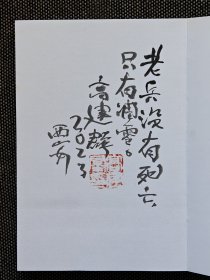 老兵没有死亡
只有凋零。
高建群
2023
西安